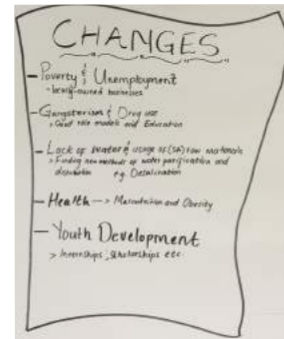 CHANGES
- Poverty & Unemployment
- locally-owned businesses
- Gangsterism & Drug use
> Good role models and Education
- Lack of Water & usage of (SA) raw materials
> Finding new methods of water purification and
distribution e.g. Desalination
- Health --> Malnutrition and Obesity
- Youth Development
> Internships, Scholarships etc.